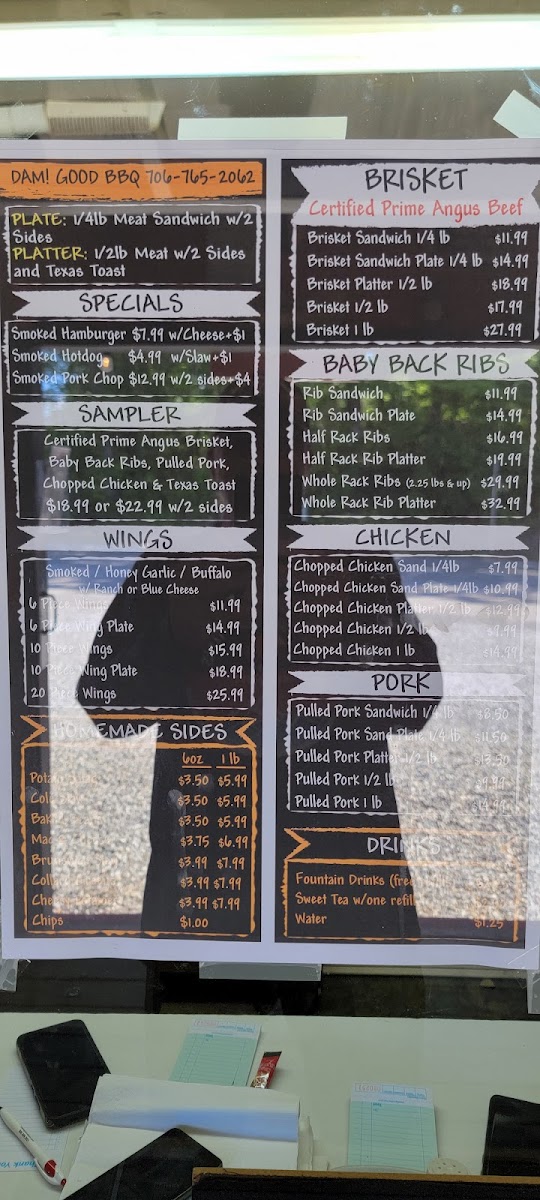 DAM! GOOD BBQ 706-765-2062
PLATE: 1/4lb Meat Sandwich w/2
Sides
PLATTER: 1/2lb Meat w/2 Sides
and Texas Toast
SPECIALS
Smoked Hamburger $7.99 w/Cheese+$1
Smoked Hotdog $4.99 w/Slaw+$1
Smoked Pork Chop $12.99 w/2 sides+$4
SAMPLER
Certified Prime Angus Brisket,
Baby Back Ribs, Pulled Pork,
Chopped Chicken & Texas Toast
$18.99 or $22.99 w/2 sides
WINGS
Smoked / Honey Garlic / Buffalo
w/ Ranch or Blue Cheese
6 Piece Wings $11.99
6 Piece Wing Plate $14.99
10 Piece Wings $15.99
10 Piece Wing Plate $18.99
20 Piece Wings $25.99
HOMEMADE SIDES
6oz 1 lb
$3.50 $5.99
$3.50 $5.99
$3.50 $5.99
$3.75 $6.99
$3.99 $7.99
$3.99 $7.99
$3.99 $7.99
Chips $1.00
BRISKET
Certified Prime Angus Beef
Brisket Sandwich 1/4 lb $11.99
Brisket Sandwich Plate 1/4 lb $14.99
Brisket Platter 1/2 lb $18.99
Brisket 1/2 lb $17.99
Brisket 1 lb $27.99
BABY BACK RIBS
Rib Sandwich $11.99
Rib Sandwich Plate $14.99
Half Rack Ribs $16.99
Half Rack Rib Platter $19.99
Whole Rack Ribs (2.25 lbs & up) $29.99
Whole Rack Rib Platter $32.99
CHICKEN
Chopped Chicken Sand 1/4lb $7.99
Chopped Chicken Sand Plate 1/4lb $10.99
Chopped Chicken Platter 1/2 lb $12.99
Chopped Chicken 1/2 lb $9.99
Chopped Chicken 1 lb $14.99
PORK
Pulled Pork Sandwich 1/4 lb $8.50
Pulled Pork Sand Plate 1/4 lb $11.50
Pulled Pork Platter 1/2 lb $13.50
Pulled Pork 1/2 lb $9.99
Pulled Pork 1 lb
DRINKS
Fountain Drinks
Sweet Tea w/one refill
Water $1.25